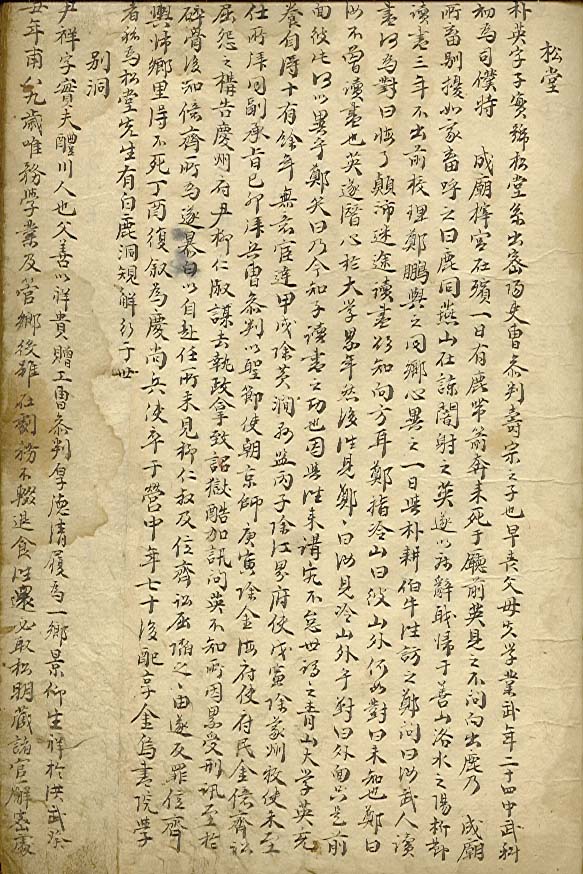 松堂
朴英字子實號松堂系出密陽吏曹叅判壽宗之子也早喪父母失學業武年二十四中武科
初爲司僕時 成廟梓宮在殯一日有鹿帶箭奔来死于廳前英見之不問向出鹿乃 成廟
所畜馴擾如家畜呼之曰鹿同燕山在諒闇射之英遂以病辭職歸于善山洛水之陽折節
讀書三年不出前校理鄭鵬與之同鄕心異之一日與朴耕伯牛往訪之鄭問曰汝武人讀
書何爲對曰悔了顚沛迷途讀書欲知向方耳鄭指冷山曰彼山外何如對曰未知也鄭曰
汝不曾讀書也英遂潛心於大學累年然後往見鄭曰汝見冷山外乎對曰外面只是前
面彼此何以異乎鄭笑曰乃今知子讀書之功也因與往来講究不怠世謂之青山大學英充
養自得十有餘年無意宦達甲戌除黃澗縣監丙子除江界府使戊寅除義州牧使未至
任所拜同副承旨己卯拜兵曹叅判以聖節使朝京師庚寅除金海府使府民金億齊訟
屈怨之構告慶州府尹柳仁淑謀去執政拿致詔獄酷加訊問英不知所因累受刑訊至於
碎骨後知億齊所爲遂暴白以自赴任所未見柳仁叔及位齊訟屈陷之由遂反罪位齊
輿歸鄕里得不死丁酉復叙爲慶尙兵使卒于營中年七十後配享金烏書院學
者称爲松堂先生有白鹿洞規解行于世
別洞
尹祥字實夫醴川人也父善以祥貴贈工曹叅判厚德清履爲一鄕景仰生祥於洪武癸
丑年甫八九歲唯務學業及管鄕役雖在劇務不輟退食往還必取松明藏諸官廨密處